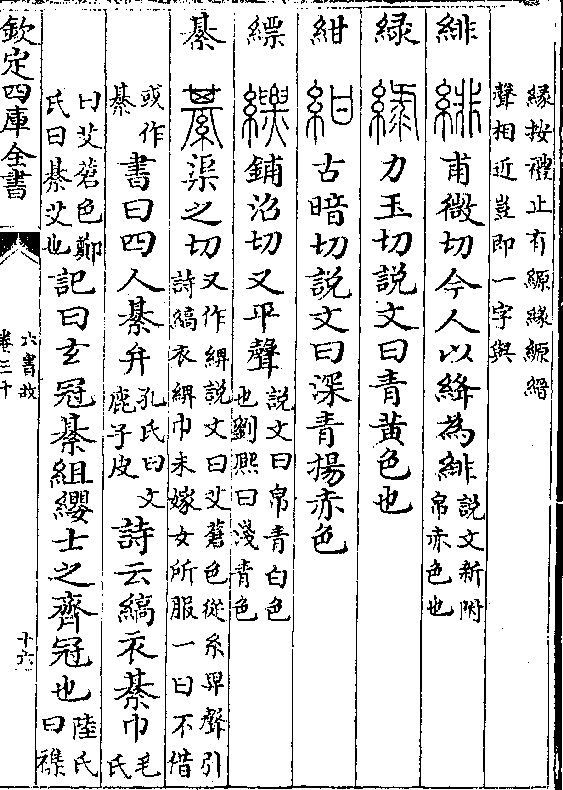 縁按禮止有縓緣縓緇
聲相近豈即一字與
緋 緋 甫微切今人以絳為緋說文新附
帛赤色也
緑 緑 力玉切説文曰青黃色也
紺 紺 古暗切説文曰深青揚赤色
縹 縹 鋪沼切又平聲説文曰帛青白色
也劉熙曰淺青色
綦 綦 渠之切又作綼説文曰艾蒼色從糸畀聲引
詩縞衣綼巾未嫁女所服一曰不借
或作
綦
書曰四人綦弁孔氏曰文
鹿子皮
詩云縞衣綦巾毛
氏
曰艾蒼色鄭
氏曰綦艾也
記曰玄冠綦組纓士之齊冠也陸氏
曰襍
欽定四庫全書
六書故
卷三十
十六